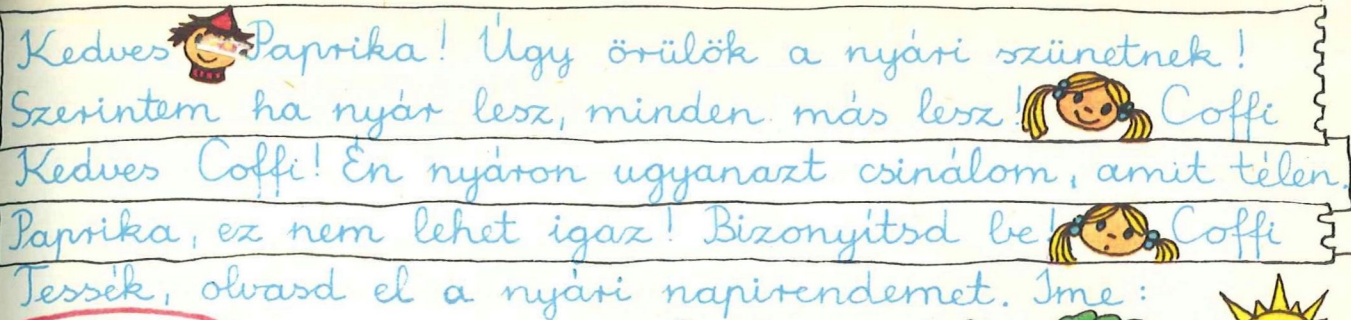 Kedves Paprika! Úgy örülök a nyári szünetnek!
Szerintem ha nyár lesz, minden más lesz! Coffi
Kedves Coffi! Én nyáron ugyanazt csinálom, amit télen.
Paprika, ez nem lehet igaz! Bizonyítsd be! Coffi
Tessék, olvasd el a nyári napirendemet. Íme: